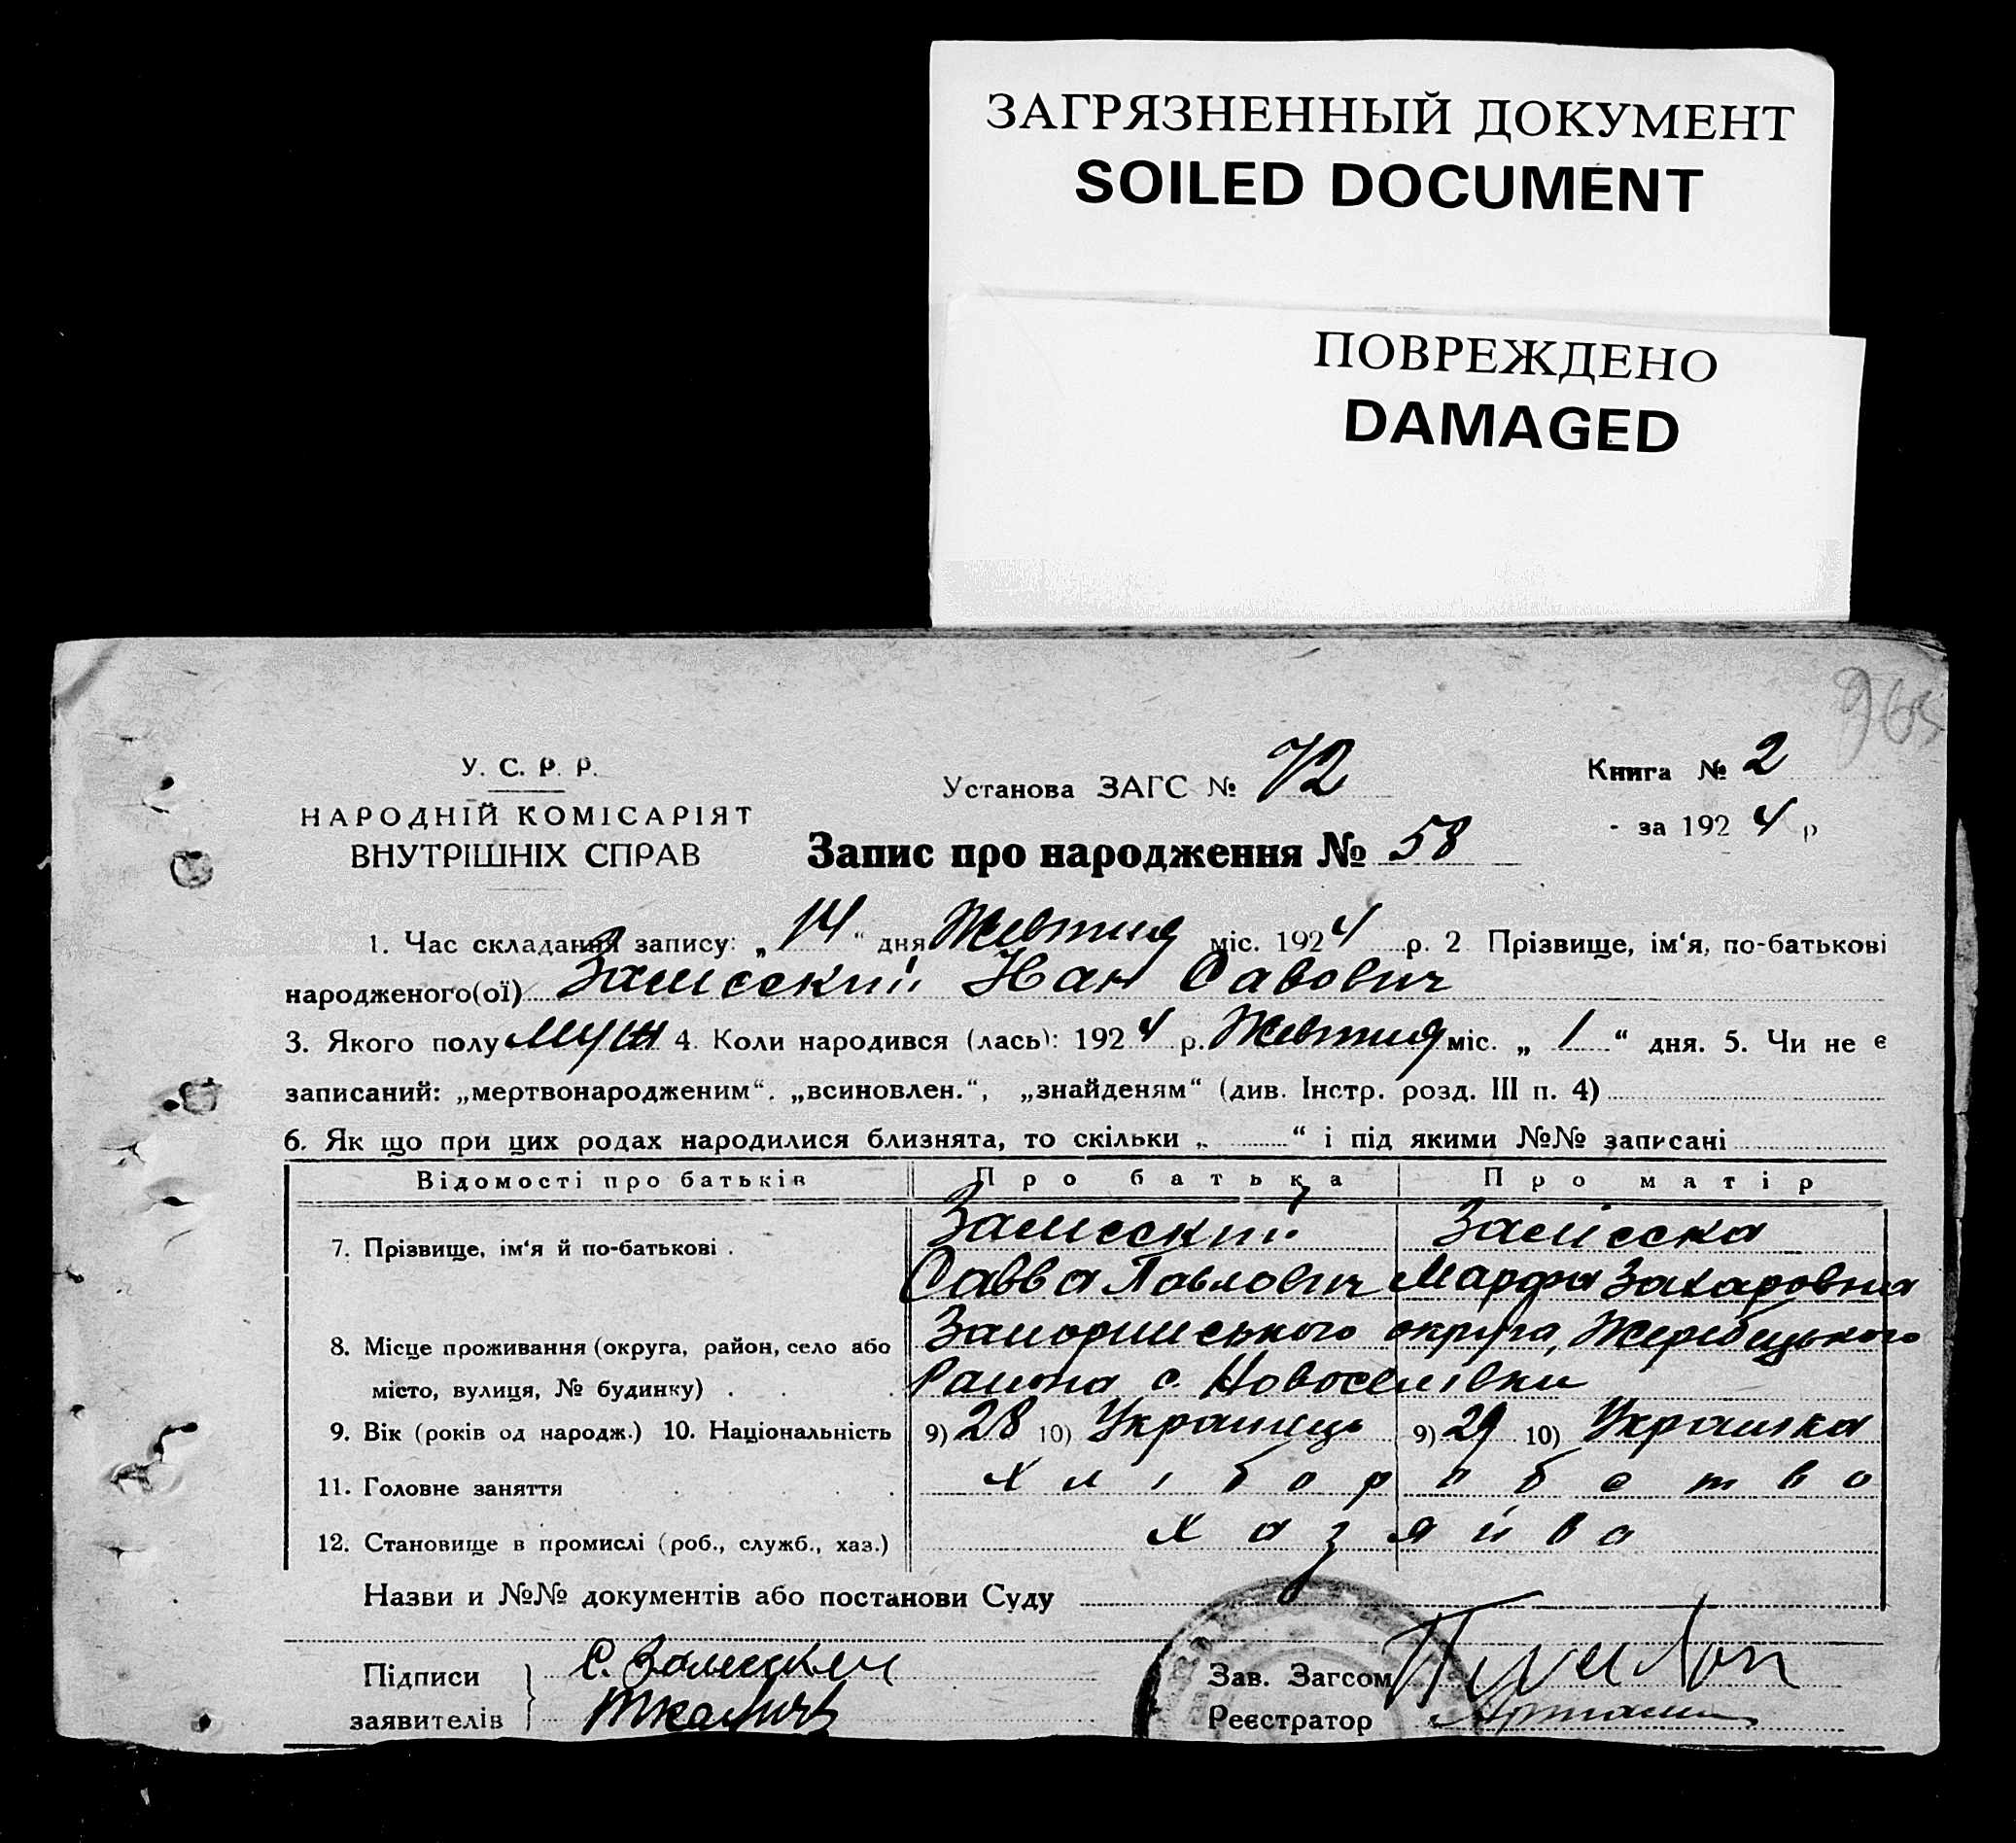 ЗАГРЯЗНЕННЫЙ ДОКУМЕНТ
SOILED DOCUMENT
ПОВРЕЖДЕНО
DAMAGED
У. С. Р. Р.
НАРОДНІЙ КОМІСАРІЯТ
ВНУТРІШНІХ СПРАВ
Установа ЗАГС № 72
Запис про народження № 58
Книга № 2
за 1924 р
1. Час складання запису: „14“ дня Жовтня міс. 1924 р. 2 Прізвище, ім‘я, по-батькові
народженого(ої) Залисский Иан Савович
3. Якого полу муж 4. Коли народився (лась): 1924 р. Жовтня міс. „1“ дня. 5. Чи не є
записаний: „мертвонародженим“. „всиновлен.“, „знайденям“ (див. Інстр. розд. III п. 4)
6. Як що при цих родах народилися близнята, то скільки „ “ і під якими №№ записані
Відомості про батьків Про батька Про матір
7. Прізвище, ім‘я й по-батькові . Залисский Залісска
Савва Павлович Марфа Захаровна
8. Місце проживання (округа, район, село або Запоріжського округа, Жеребецького
місто, вулиця, № будинку) . . . Района с. Новоселівки
9. Вік (років од народж.) 10. Національність 9) 28 10) Українець 9) 29 10) Українка
11. Головне заняття . . . хліборобство
12. Становище в промислі (роб., служб., хаз.) хазяйва
Назви и №№ документів або постанови Суду
Підписи С. Залиский
заявителів
Зав. Загсом
Реєстратор